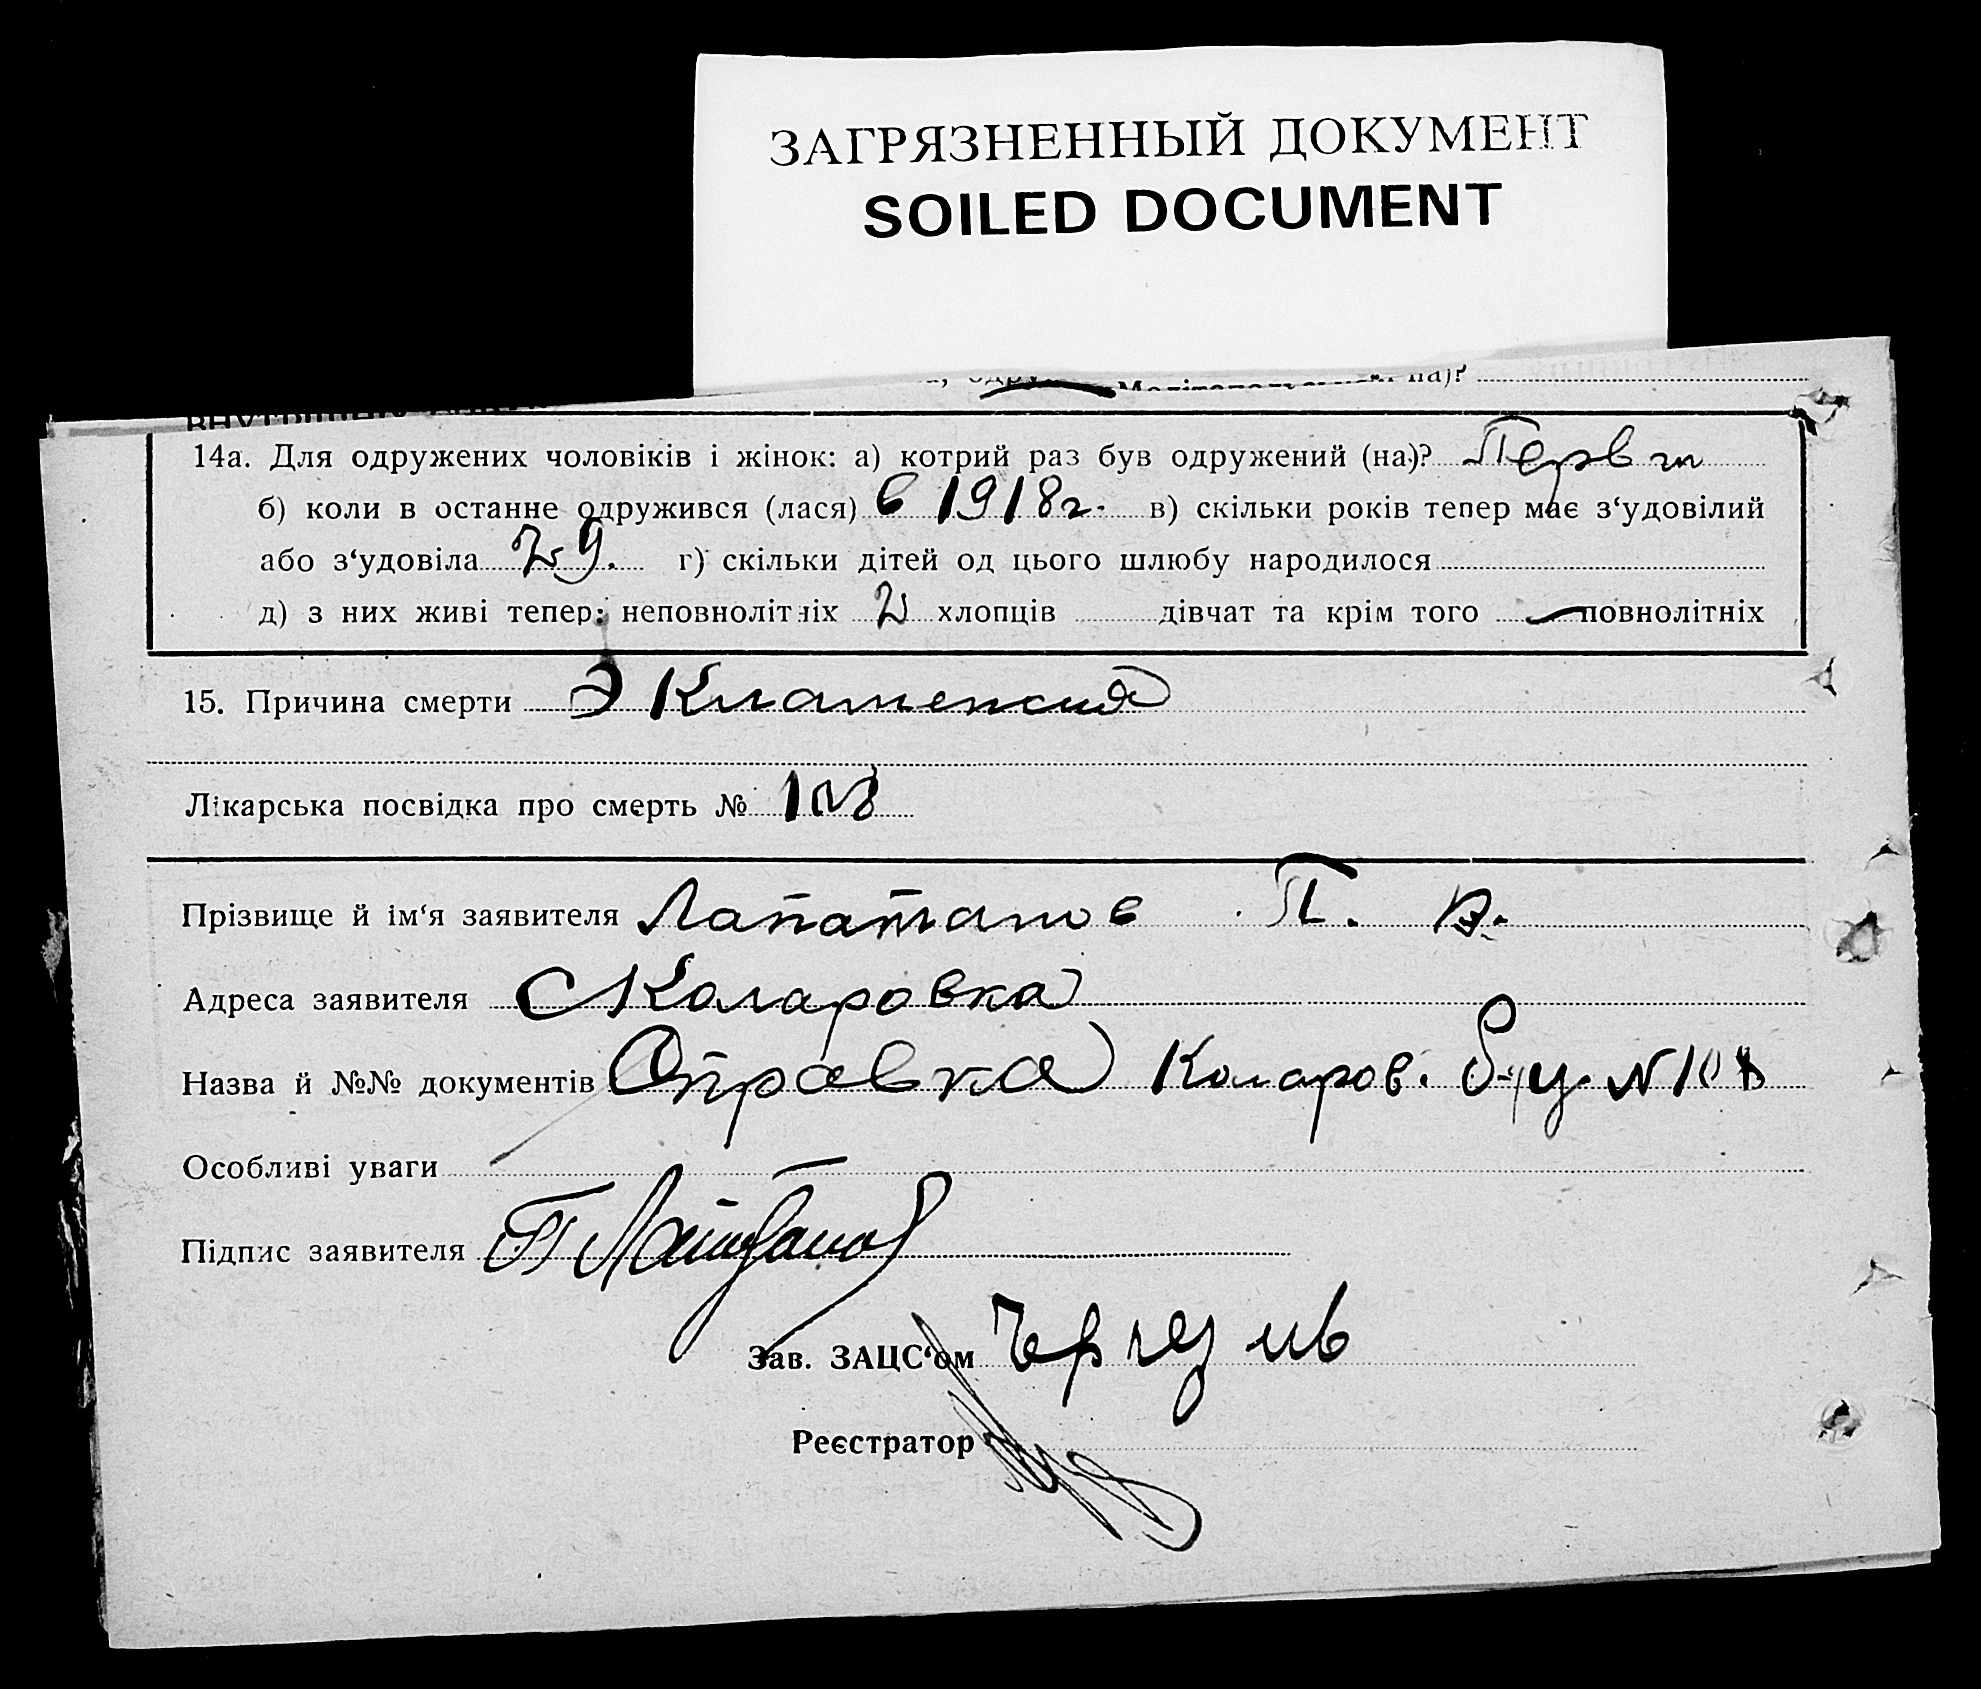 ЗАГРЯЗНЕННЫЙ ДОКУМЕНТ
SOILED DOCUMENT
14а. Для одружених чоловіків і жінок: а) котрий раз був одружений (на)?
б) коли в останне одружився (лася) в 1918 г. в) скільки років тепер має з‘удовілий
або з‘удовіла 29. г) скільки дітей од цього шлюбу народилося
д) з них живі тепер: неповнолітніх 2 хлопців дівчат та крім того — повнолітніх
15. Причина смерти Эклампсия
Лікарська посвідка про смерть № 108
Прізвище й ім‘я заявителя П.
Адреса заявителя С Коларовка
Назва й №№ документів Справка Коларов. N 108
Особливі уваги
Підпис заявителя
Зав. ЗАЦС‘ом
Реєстратор